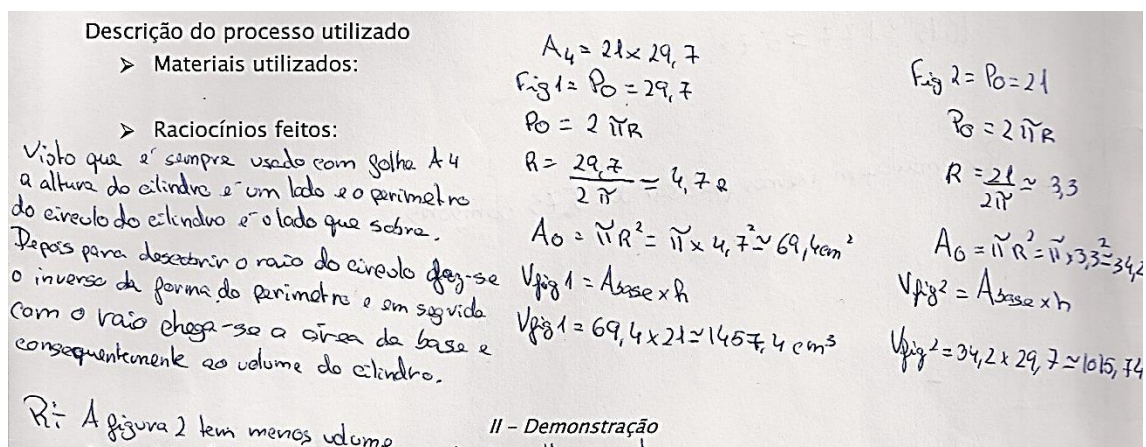 Descrição do processo utilizado
➤ Materiais utilizados:
➤ Raciocínios feitos:
Visto que é sempre usado com folha A4
a altura do cilindro é um lado e o perimetro
do circulo do cilindro é o lado que sobra.
Depois para descobrir o raio do circulo faz-se
o inverso da forma do perimetro e em seguida
com o raio chega-se a área da base e
consequentemente ao volume do cilindro.
R:- A figura 2 tem menos volume
A4 = 21 x 29,7
Fig 1 = PO = 29,7
PO = 2 π R
R = 29,7 / 2 π ≃ 4,7
AO = π R² = π x 4,7² ≃ 69,4 cm²
Vfig 1 = Abase x h
Vfig 1 = 69,4 x 21 ≃ 1457,4 cm³
Fig 2 = PO = 21
PO = 2 π R
R = 21 / 2π ≃ 3,3
AO = π R² = π x 3,3² ≃ 34,2
Vfig 2 = Abase x h
Vfig 2 = 34,2 x 29,7 ≃ 1015,74
II – Demonstração